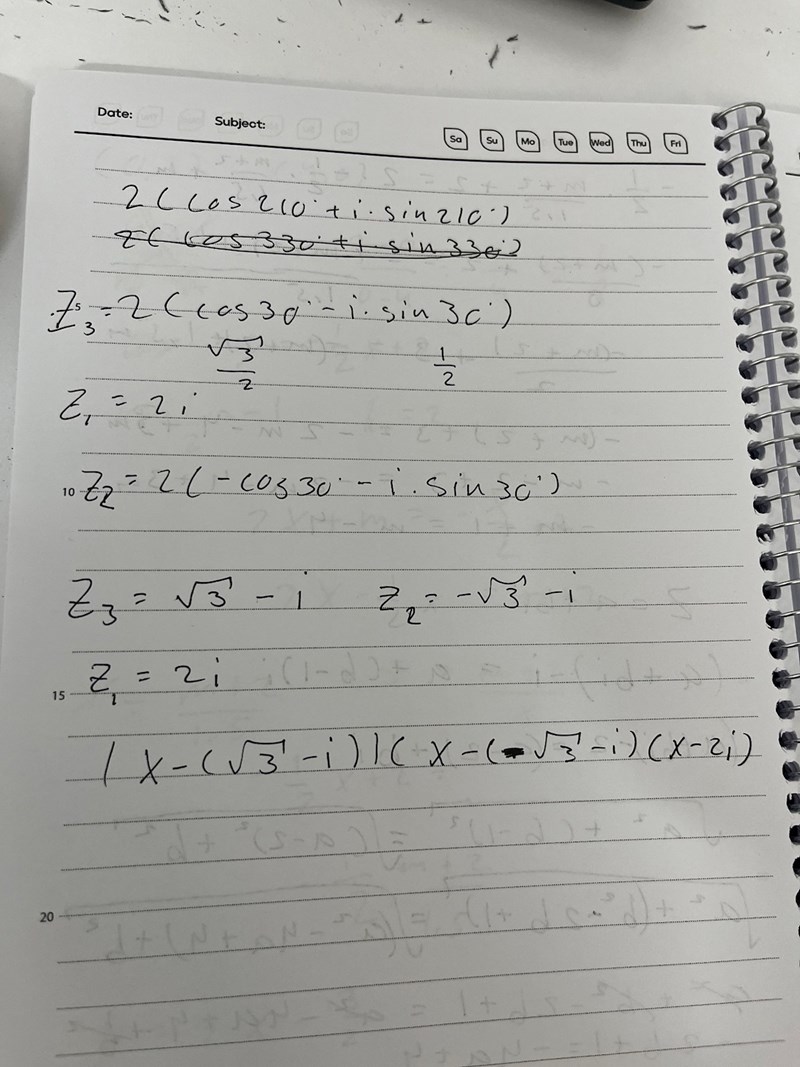 Date:
Subject:
Sa Su Mo Tue Wed Thu Fri
2(cos210°+i.sin210°)
2(cos330°+i sin330°)
Z₃=2(cos30°-i.sin30°)
√3/2 1/2
Z₁=2i
10 Z₂=2(-cos30°-i.sin30°)
Z₃=√3-i Z₂=-√3-i
Z₁=2i
15
(x-(√3-i))(x-(-√3-i)(x-2i)
20